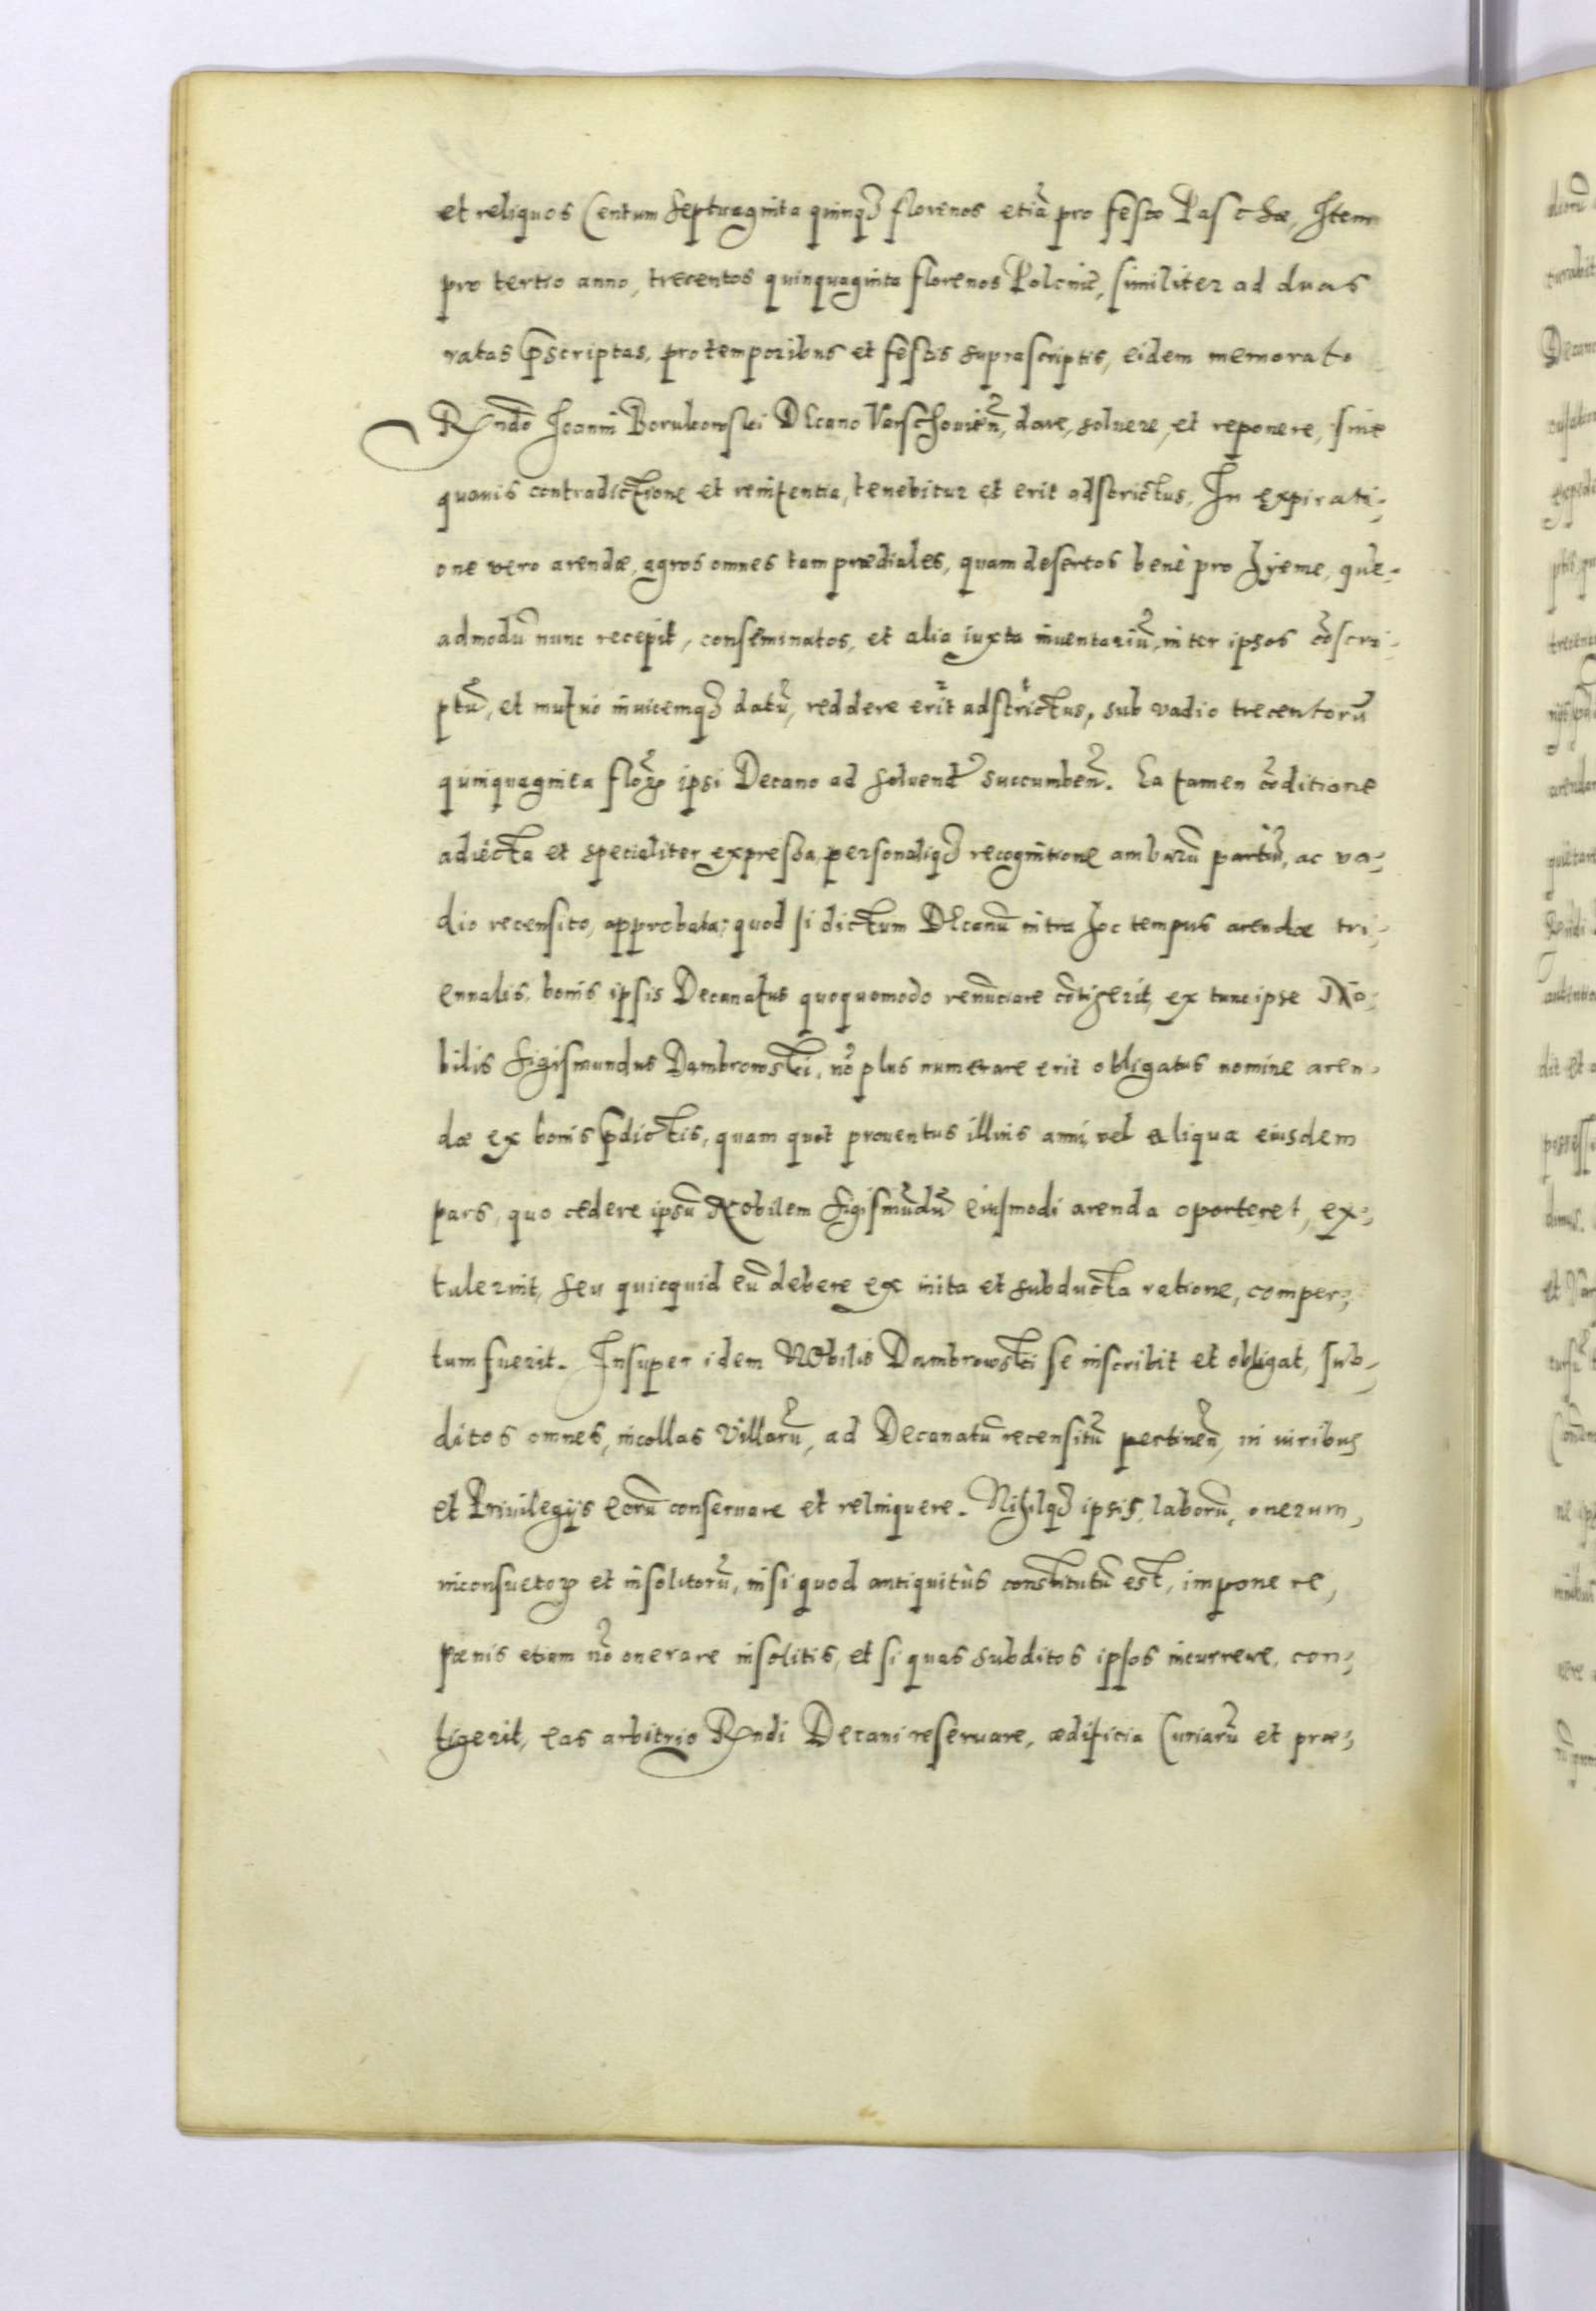 et reliquos Centum septuaginta quinqȝ florenos etiã pro festo Paschæ, Item
pro tertio anno, trecentos quinquaginta florenos Poloniẽ, similiter ad duas
ratas p̃scriptas, pro temporibus et festis suprascriptis, eidem memorato
Rndo Joanni Borukowski Decano Varschouień, dare, soluere, et reponere, sine
quouis contradictione et renitentia, tenebitur et erit adstrictus, In expirati-
one vero arendæ, agros omnes tam prædiales, quam desertos benè pro hyeme, quẽ-
admodũ nunc recepit, conseminatos, et alia iuxta inuentariũ, inter ipsos cõscri-
ptũ, et mutuo inuicemqȝ datũ, reddere erit adstrictus, sub vadio trecentorũ
quinquaginta floꝝ ipsi Decano ad soluend succumbeñ. Ea tamen cõditione
adiecta et specialiter expressa, personaliqȝ recognitione ambarũ partiũ, ac va-
dio recensito, approbata; quod si dictum Decanũ intra hoc tempus arendæ tri-
ennalis, bonis ipsis Decanatus quoquomodo renũciare cõtigerit, ex tunc ipse No-
bilis Sigismundus Dambrowski, nõ plus numerare erit obligatus nomine aren-
dæ ex bonis p̃dictis, quam quot prouentus illius anni, vel aliqua eiusdem
pars, quo cedere ipsũ Nobilem Sigismũdũ eiusmodi arenda oporteret, ex-
tulerint, seu quicquid eũ debere ex inita et subducta ratione, comper-
tum fuerit. Insuper idem Nobilis Dambrowski se inscribit et obligat, sub-
ditos omnes, incollas Villarũ, ad Decanatũ recensitũ pertineñ, in iuribus
et Priuilegijs eorũ conseruare et relinquere. Nihilqȝ ipsis, laborũ, onerum,
inconsuetoꝝ et insolitorũ, nisi quod antiquitùs constitutũ est, imponere,
pœnis etiam nõ onerare insolitis, et si quas subditos ipsos incurrere, con-
tigerit, eas arbitrio Rndi Decani reseruare, ædificia Curiarũ et præ-